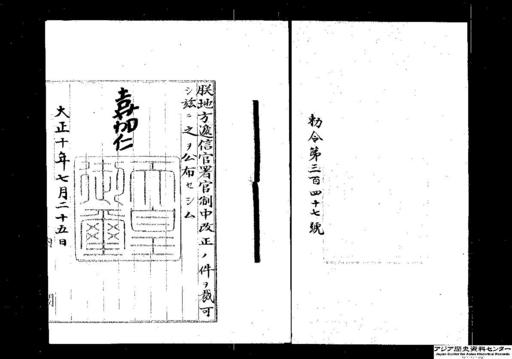 勅令第三百四十七號
朕地方遞信官署官制中改正ノ件ヲ裁可
シ茲ニ之ヲ公布セシム
嘉仁
天皇御璽
大正十年七月二十五日
アジア歴史資料センター
Japan Center for Asian Historical Records